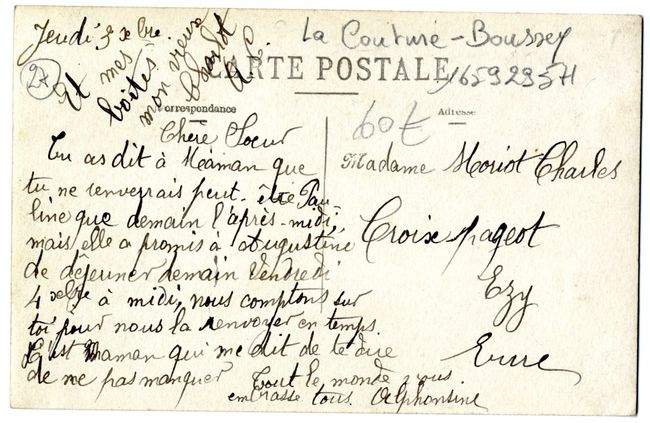 Jeudi 3 xbre.
La Couture-Boussey
2x
Et mes
boîtes
mon vieux
Charlot
A. C.
CARTE POSTALE
165929571
Correspondance
60€
Adresse
Chère Soeur
Tu as dit à Maman que
tu ne renverrais peut-être Pau-
line que demain l'après-midi,
mais elle a promis à Augustine
de déjeuner demain Vendredi
4 xbre à midi, nous comptons sur
toi pour nous la renvoyer en temps.
C'est Maman qui me dit de te dire
de ne pas manquer
Tout le monde vous
embrasse tous. Alphonsine
Madame Moriot Charles
Croix pageot
Ezy
Eure